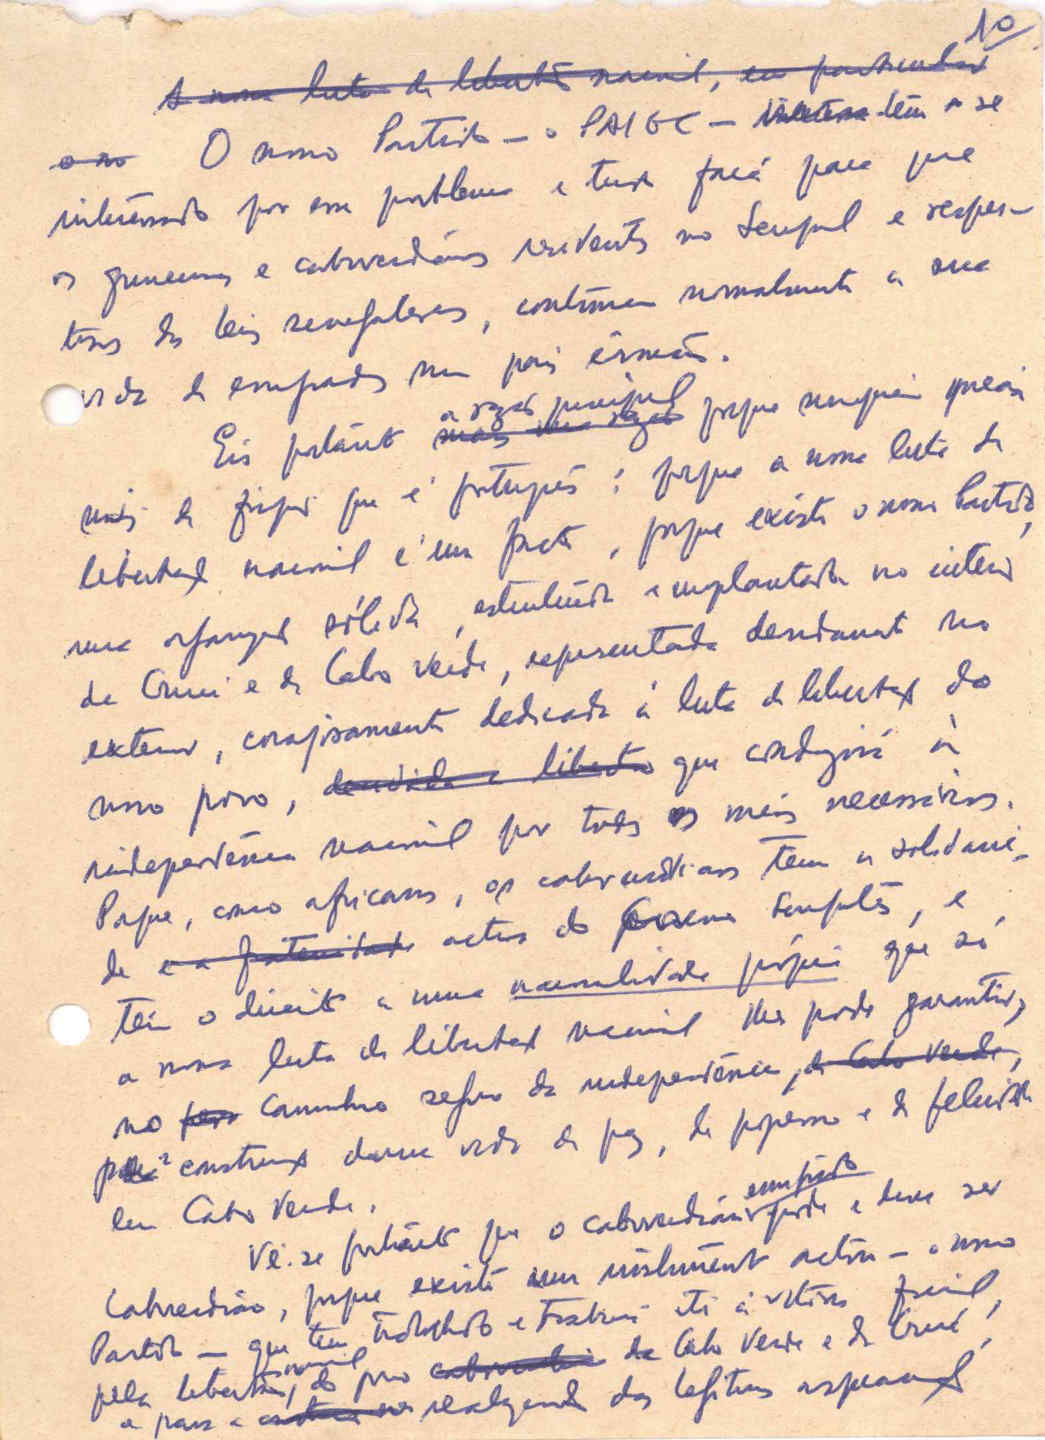 10
A nossa luta de libertação nacional, em particular
o no O nosso Partido — o PAIGC — tem-se
interessado por esse problema e tudo fará para que
os guineenses e caboverdianos residentes no Senegal e respei-
tosos das leis senegalesas, continuem normalmente a sua
vida de emigrados num país irmão.
a razão principal
Eis portanto mais uma razão porque ninguém quererá
mais de fingir que é português: porque a nossa luta de
libertação nacional é um facto, porque existe o nosso Partido,
uma organização sólida, estruturada e implantada no interior
da Guiné e de Cabo Verde, representada no
exterior, corajosamente dedicada à luta de libertação do
nosso povo, que conduzirá à
independência nacional por todos os meios necessários.
Porque, como africanos, os caboverdianos têm a solidarie-
de e a fraternidade activa do senegalês, e
têm o direito a uma nacionalidade própria que só
a nossa luta de libertação nacional lhes pode garantir,
no caminho seguro da independência, de Cabo Verde,
para construção duma vida de paz, de progresso e de felicidade
em Cabo Verde.
emigrado
Vê-se portanto que o caboverdiano pode e deve ser
Caboverdiano, porque existe um instrumento activo — o nosso
Partido — que tem trabalhado e trabalhará até à vitória final,
nacional
pela libertação do povo caboverdiano de Cabo Verde e da Guiné,
e para a realização das legítimas aspirações